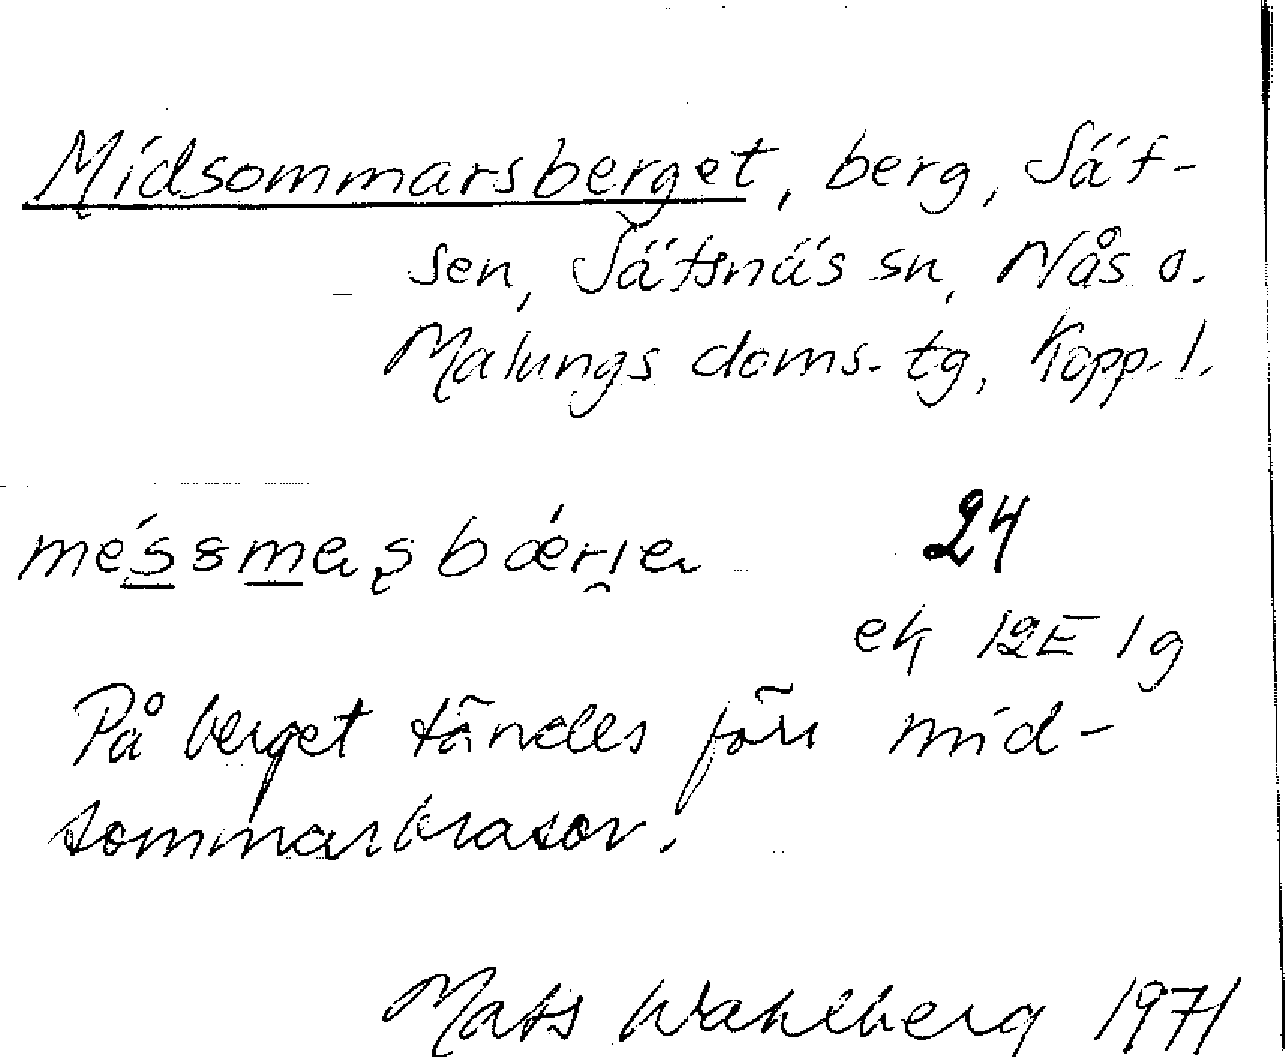 Midsommarsberget, berg, Säf-
sen, Säfsnäs sn, Nås o.
Malungs doms. tg, Kopp. l.
24
ek 12E 1g
På berget tändes förr mid-
sommarbrasor.
Mats Wahlberg 1971